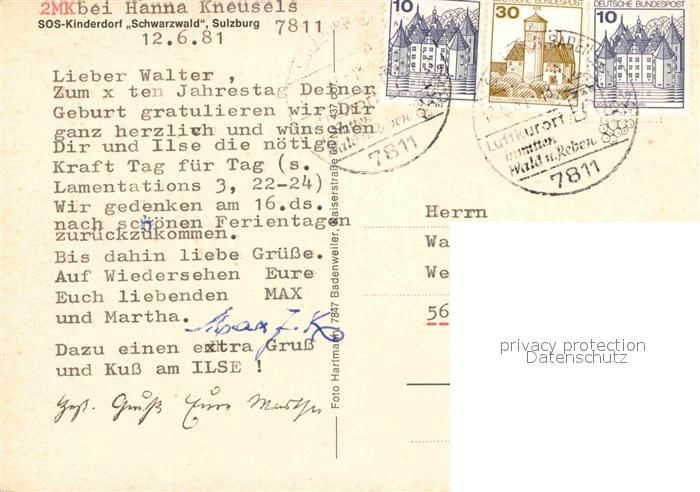 2MKbei Hanna Kneusels
SOS-Kinderdorf „Schwarzwald", Sulzburg 7811
12.6.81
Lieber Walter ,
Zum x ten Jahrestag Deiner
Geburt gratulieren wir Dir
ganz herzlich und wünschen
Dir und Ilse die nötige
Kraft Tag für Tag (s.
Lamentations 3, 22-24)
Wir gedenken am 16.ds.
nach schönen Ferientagen
zurückzukommen.
Bis dahin liebe Grüße.
Auf Wiedersehen Eure
Euch liebenden MAX
und Martha.
Dazu einen extra Gruß
und Kuß am ILSE !
Gruß Eure Martha
Foto Hartmann, 7847 Badenweiler, Kaiserstraße 8
10
DEUTSCHE BUNDESPOST
30
DEUTSCHE BUNDESPOST
10
DEUTSCHE BUNDESPOST
Wald u. Reben
7811
Luftkurort
inmitten
Wald u. Reben
7811
Herrn
Wa
We
56
privacy protection
Datenschutz